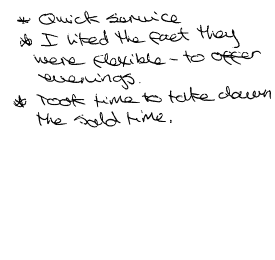 * Quick service
* I liked the fact they
were flexible - to offer
evenings.
* Took time to take down
the sold time.